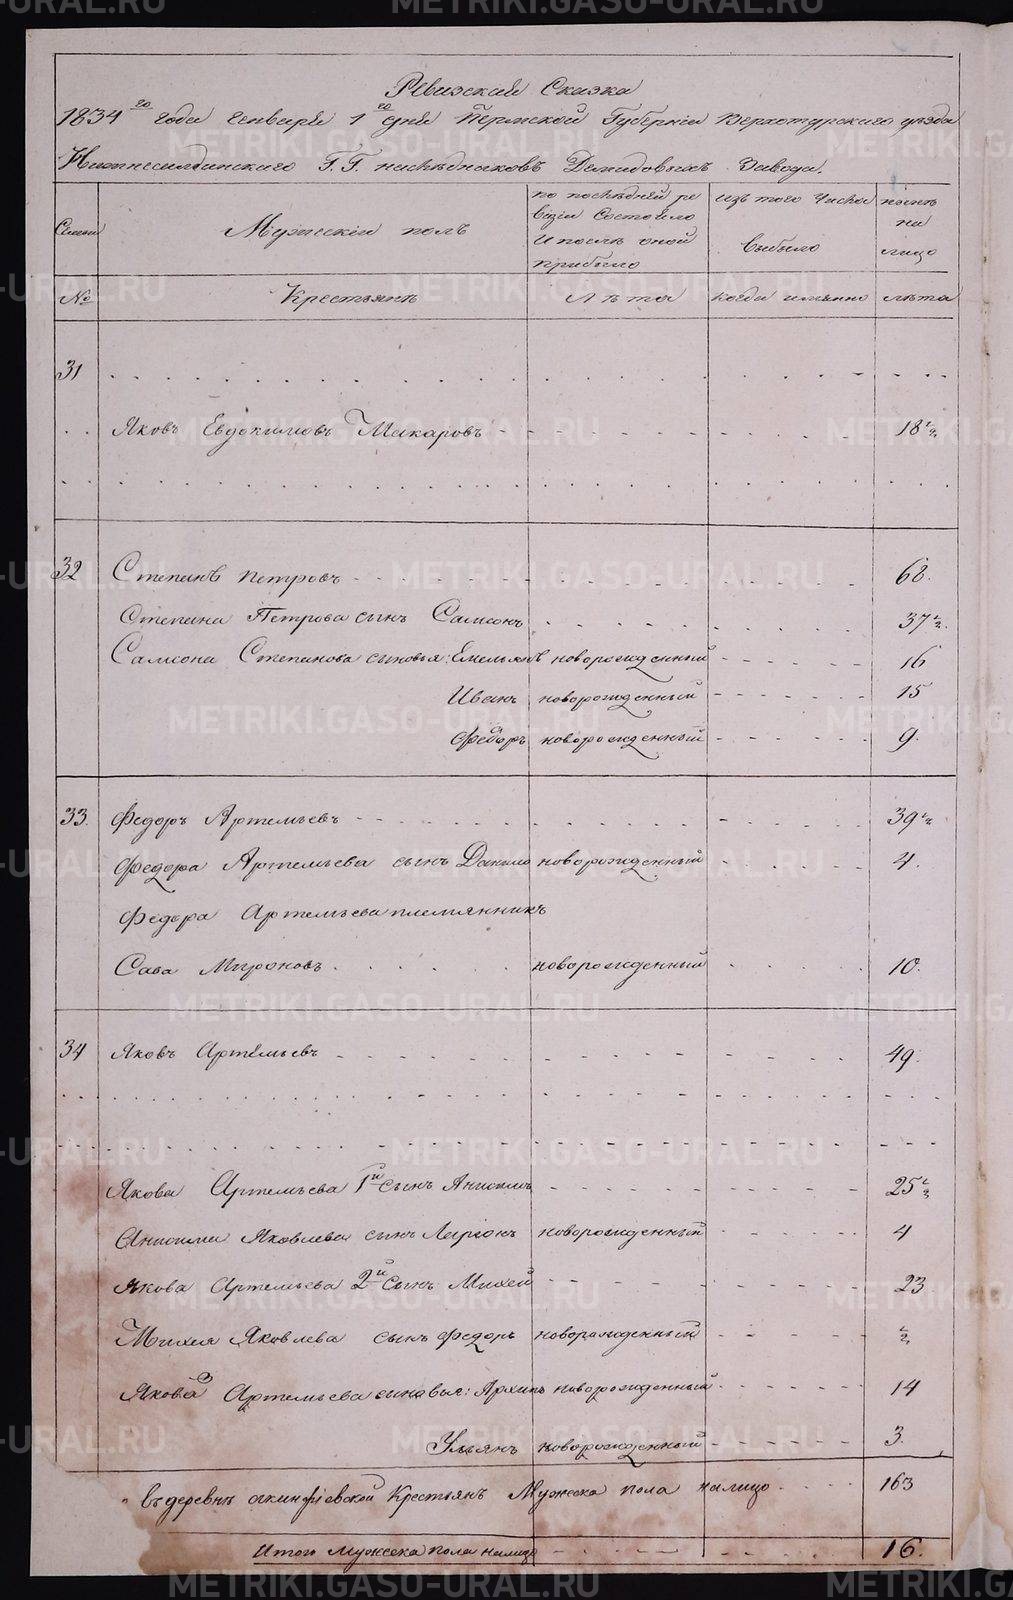 Ревизская Сказка
1834го года Генваря 1го дня Пермской Губернiи Верхотурского уезда
Нижнесалдинского Г.Г. наследниковъ Демидовыхъ Завода.
Семьи
Мужескiй полъ
по последней ре
визiи состояло
и после оной
прибыло
изъ того числа
выбыло
ныне
на
лицо
№ Крестьянъ Лѣта когда именно лѣта
31
Яковъ Евдокимовъ Макаровъ 18 1/2
32 Степанъ Петровъ 68.
Степана Петрова сынъ Самсонъ 37 1/2.
Самсона Степанова сыновья: Емельянъ новорожденный 16
Иванъ новорожденный 15
Федоръ новорожденный 9.
33. Федоръ Артемьевъ 39 1/2
Федора Артемьева сынъ Данило новорожденный 4.
Федора Артемьева племянникъ
Сава Мироновъ новорожденный 10.
34 Яковъ Артемьевъ 49.
Якова Артемьева 1й сынъ Анисимъ 25 1/2
Анисима Яковлева сынъ Ларiонъ новорожденный 4
Якова Артемьева 2й сынъ Михей 23
Михея Яковлева сынъ Федоръ новорожденный 1/2
Якова Артемьева сыновья: Архипъ новорожденный 14
Ульянъ новорожденный 3.
въ деревне акинфiевской Крестьянъ Мужеска пола налицо 163
Итого мужеска пола налицо 16.
METRIKI.GASO-URAL.RU